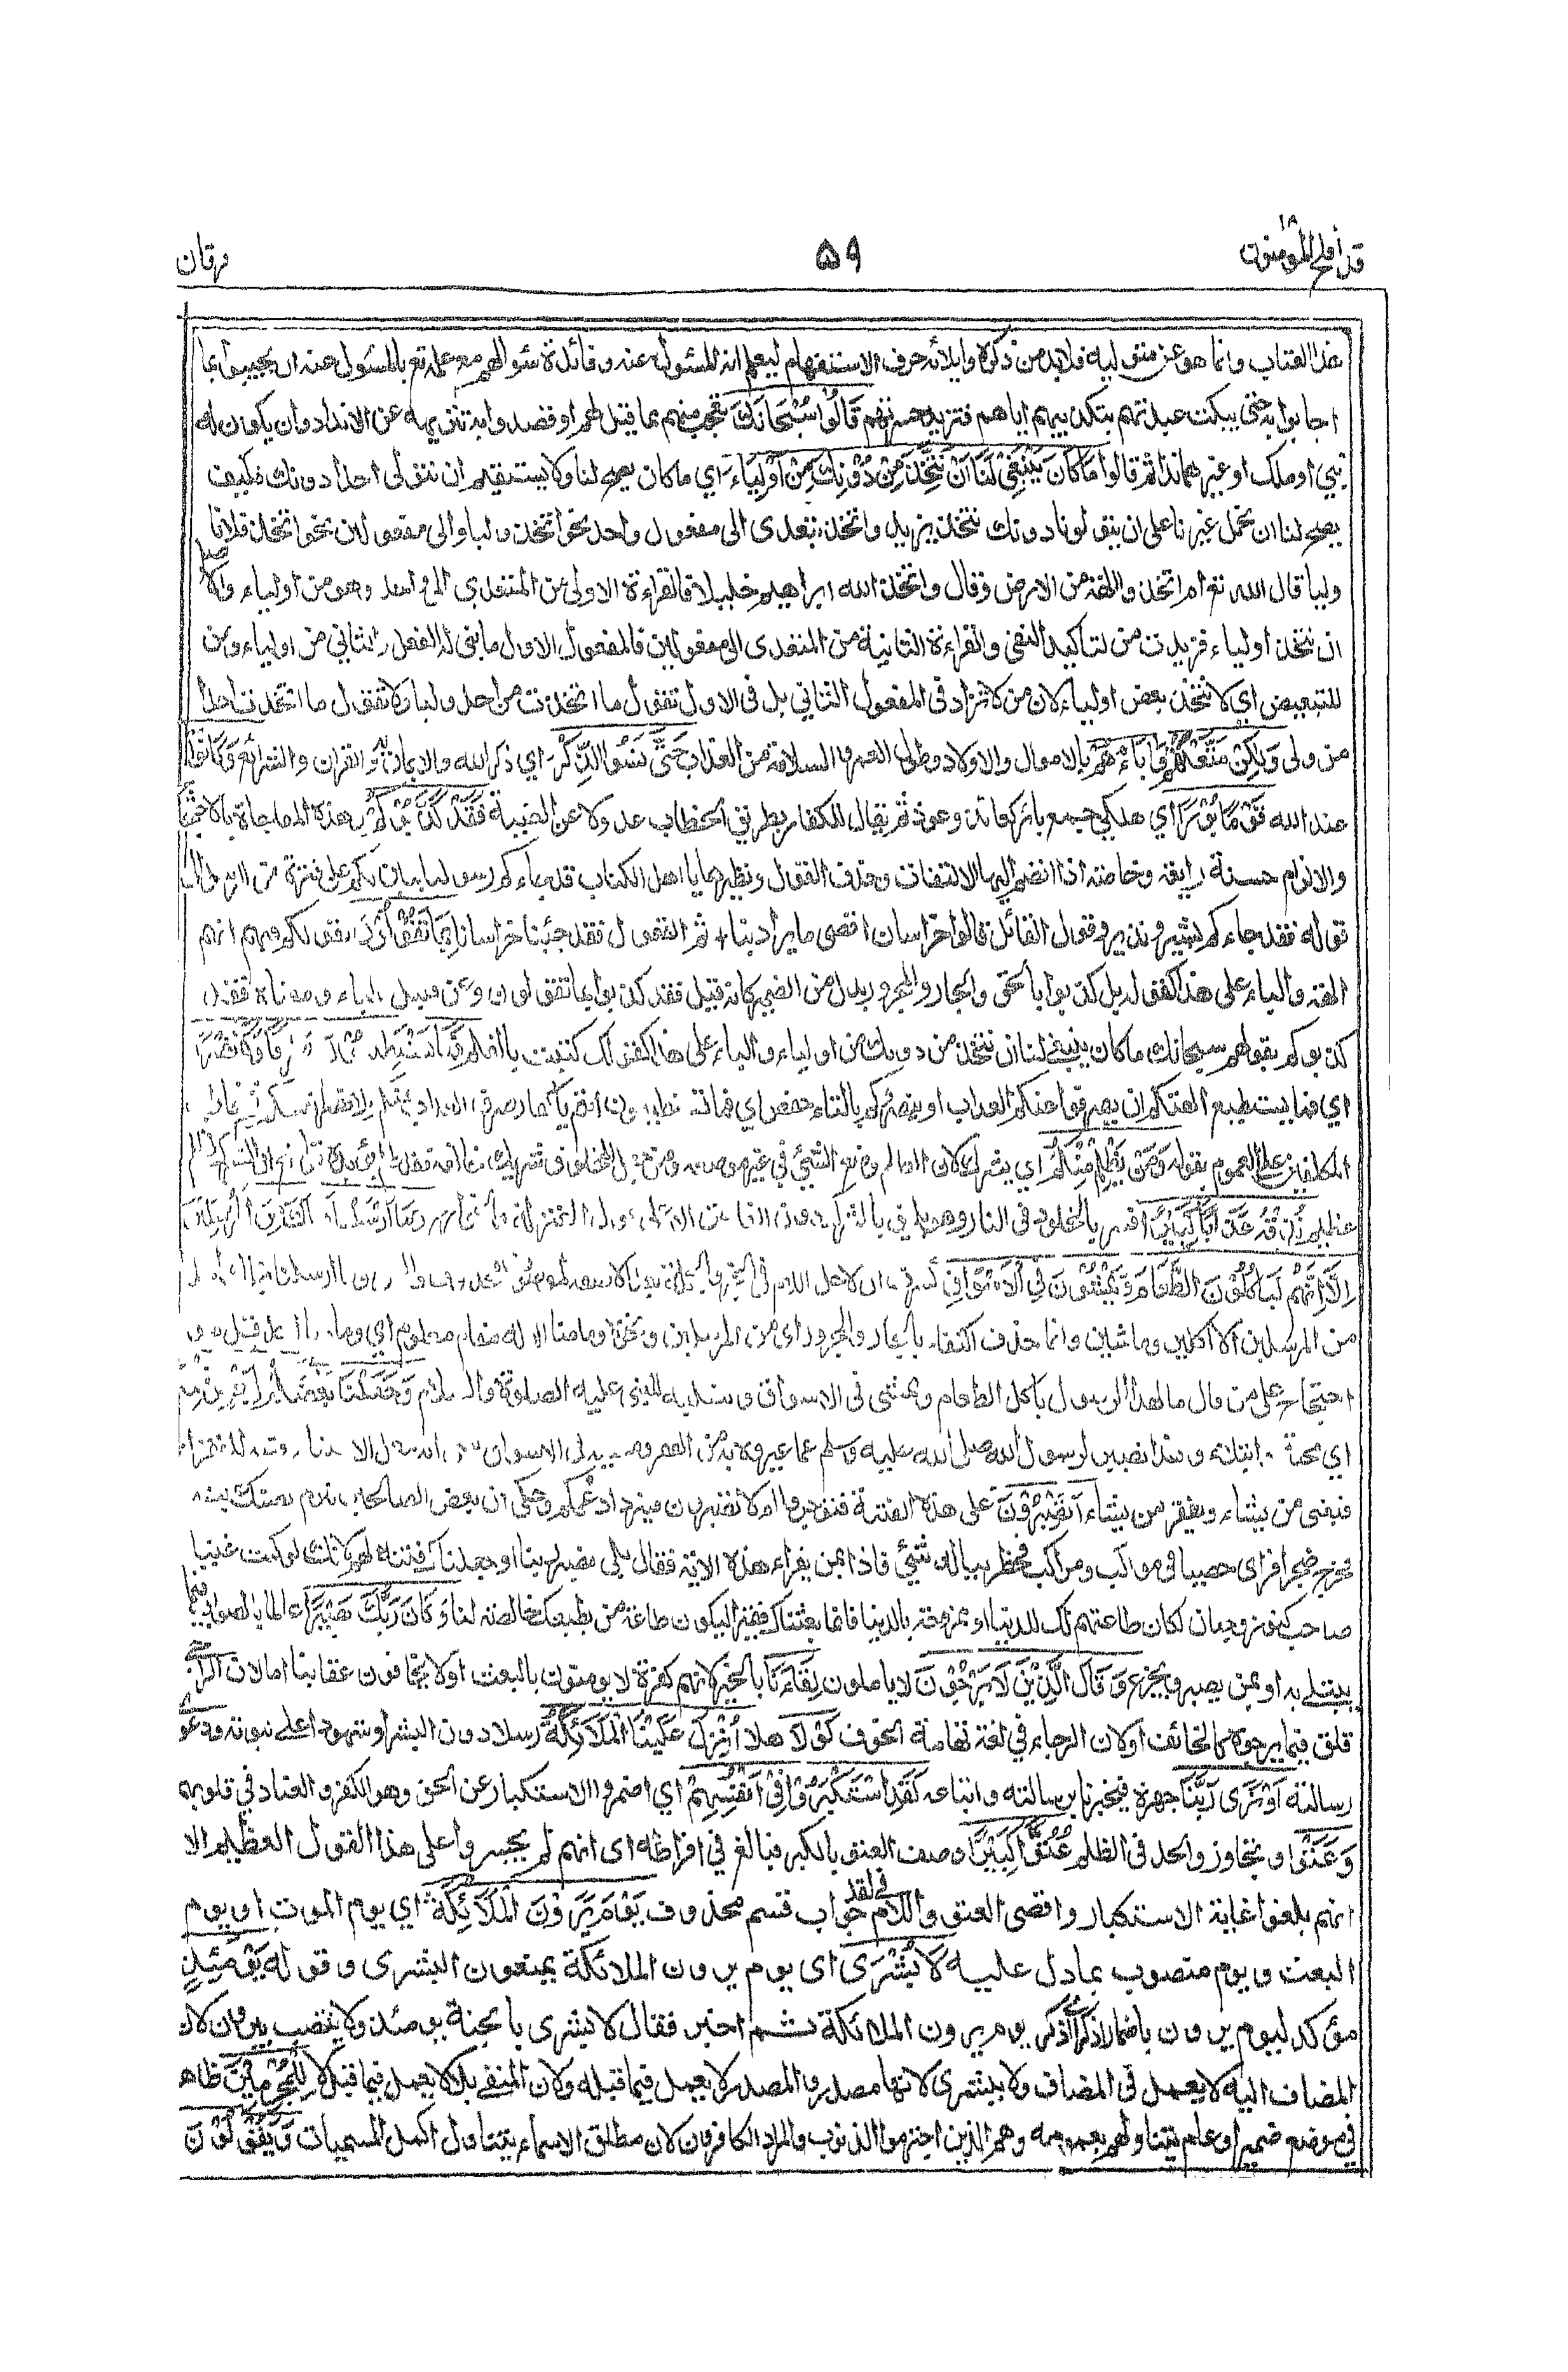 قد أفلح المؤمنون ١٨
٥٩
فرقان
هذا العتاب وانما هو عن متوليه فلابد من ذكره وايلائه حرف الاستفهام ليعلم انه المسئول عنه وفائدة سئوالهم مع علمه تع بالمسئول عنه ان يجيبوا بما
اجابوا به حتى يبكت عبدتهم بتكذيبهم اياهم فتزيد حسرتهم قَالُوْا سُبْحَانَكَ تعجب منهم بما قيل لهم او قصدوا به تنزيهه عن الانداد وان يكون له
نبي او ملك او غيرهما ندا ثم قالوا مَا كَانَ يَنْبَغِيْ لَنَا اَنْ نَتَّخِذَ مِنْ دُوْنِكَ مِنْ اَوْلِيَاءَ اي ما كان يصح لنا ولا يستقيم ان نتولى احدا دونك فكيف
يصح لنا ان نحمل غيرنا على ان يتولونا دونك نتخذ يزيد واتخذ يتعدى الى مفعول واحد نحو اتخذ وليا والى مفعولين نحو اتخذ فلانا
وليا قال الله تع ام اتخذوا الهة من الارض وقال واتخذ الله ابراهيم خليلا فالقراءة الاولى من المتعدي الى واحد وهو من اولياء والاصل
ان نتخذ اولياء فزيدت من لتاكيد النفى والقراءة الثانية من المتعدى الى مفعولين فالمفعول الاول ما بنى له الفعل والثاني من اولياء ومن
للتبعيض اي لا نتخذ بعض اولياء لان من لا تزاد فى المفعول الثاني بل فى الاول تقول ما اتخذت من احد وليا ولا تقول ما اتخذت احدا
من ولى وَلٰكِنْ مَتَّعْتَهُمْ وَاٰبَاءَهُمْ بالاموال والاولاد وطول العمر والسلامة من العذاب حَتّٰى نَسُوا الذِّكْرَ اي ذكر الله والايمان به والقران والشرائع وَكَانُوْا
عند الله قَوْمًا بُوْرًا اي هلكى جمع بائر كعائذ وعوذ ثم يقال للكفار بطريق الخطاب عدولا عن الغيبة فَقَدْ كَذَّبُوْكُمْ وهذه المفاجاة بالاحتجاج
والالزام حسنة رايقة وخاصة اذا انضم اليها الالتفات وحذف القول ونظيرها يا اهل الكتاب قد جاءكم رسولنا يبين لكم على فترة من الرسل الى
قوله فقد جاءكم بشير ونذير وقول القائل قالوا خراسان اقصى ما يراد بنا + ثم القفول فقد جئنا خراسانا بِمَا تَقُوْلُوْنَ بقولكم فيهم انهم
الهة والباء على هذا كقوله بل كذبوا بالحق والجار والمجرور بدل من الضمير كانه قيل فقد كذبوا بما تقولون وعن قنبل بالياء ومعناه فقد
كذبوكم بقولهم سبحانك ما كان ينبغي لنا ان نتخذ من دونك من اولياء والباء على هذا كقولك كتبت بالقلم فَمَا يَسْتَطِيْعُوْنَ صَرْفًا وَلَا نَصْرًا
اي فما يستطيع الهتكم ان يصرفوا عنكم العذاب او ينصروكم بالتاء حفص اي فما تستطيعون انتم يا كفار صرف العذاب عنكم ولا نصر انفسكم ثم خاطب
المكلفين على العموم بقوله وَمَنْ يَظْلِمْ مِنْكُمْ اي يشرك لان الظلم وضع الشيئ في غير موضعه ومن جعل المخلوق شريك خالقه فقد ظلم
نُذِقْهُ عَذَابًا كَبِيْرًا فسر بالخلود فى النار وهو يليق بالمشرك دون الفاسق الا على قول المعتزلة والخوارج وَمَا اَرْسَلْنَا قَبْلَكَ مِنَ الْمُرْسَلِيْنَ
اِلَّا اِنَّهُمْ لَيَأْكُلُوْنَ الطَّعَامَ وَيَمْشُوْنَ فِي الْاَسْوَاقِ
من المرسلين الا آكلين وماشين وانما حذف اكتفاء بالجار والمجرور اى من المرسلين ونحوه وما منا الا له مقام معلوم اي وما منا احد قيل هو
احتجاج على من قال ما لهذا الرسول ياكل الطعام ويمشى فى الاسواق وتسلية للنبى عليه الصلوة والسلام وَجَعَلْنَا بَعْضَكُمْ لِبَعْضٍ فِتْنَةً
اي محنة وابتلاء وهذا تصبير لرسول الله صلى الله عليه وسلم عما عيروه به من الفقر ومشيه فى الاسواق
فيغنى من يشاء ويفقر من يشاء اَتَصْبِرُوْنَ على هذه الفتنة فتؤجروا ام لا تصبرون فيزداد غمكم وحكى ان بعض الصالحين تبرم بضنك عيشه
فخرج ضجرا فراى خصيا فى مواكب ومراكب فخطر بباله شيئ فاذا بمن يقراء هذه الاية فقال بلى نصبر ربنا او جعلناك فتنة لهم لانك لو كنت غنيا
صاحب كنوز وجنان لكان طاعتهم لك للدنيا او ممزوجة بالدنيا فانما بعثناك فقيرا ليكون طاعة من يطيعك خالصة لنا وَكَانَ رَبُّكَ بَصِيْرًا عالما بالصواب فيما
يبتلى به او بمن يصبر ويجزع وَقَالَ الَّذِيْنَ لَا يَرْجُوْنَ لا ياملون لِقَاءَنَا بالخير لانهم كفرة لا يومنون بالبعث او لا يخافون عقابنا اما لان الراجى
قلق فيما يرجوه كالخائف او لان الرجاء في لغة تهامة الخوف لَوْلَا هلا اُنْزِلَ عَلَيْنَا الْمَلَائِكَةُ رسلا دون البشر او شهودا على نبوته ودعوى
رسالته اَوْ نَرَى رَبَّنَا جهرة فيخبرنا برسالته واتباعه لَقَدِ اسْتَكْبَرُوْا فِيْ اَنْفُسِهِمْ اي اضمروا الاستكبار عن الحق وهو الكفر والعناد في قلوبهم
وَعَتَوْا وتجاوزوا الحد فى الظلم عُتُوًّا كَبِيْرًا وصف العتو بالكبر فبالغ في افراطه اى انهم لم يجسروا على هذا القول العظيم الا
انهم بلغوا غاية الاستكبار واقصى العتو واللام في لقد جواب قسم محذوف يَوْمَ يَرَوْنَ الْمَلَائِكَةَ اي يوم الموت او يوم
البعث ويوم منصوب بما دل عليه لَا بُشْرَى اى يوم يرون الملائكة يمنعون البشرى وقوله يَوْمَئِذٍ
مؤكد ليوم يرون باضمار اذكر اى اذكر يوم يرون الملائكة ثم اخبر فقال لا بشرى بالجنة يومئذ ولا ينتصب بيرون لان
المضاف اليه لا يعمل فى المضاف ولا ببشرى لانها مصدر والمصدر لا يعمل فيما قبله ولان المنفى بلا لا يعمل فيما قبل لا لِلْمُجْرِمِيْنَ ظاهر
في موضع ضمير او عام يتناولهم بعمومه وهم الذين اجترموا الذنوب والمراد الكافرون لان مطلق الاسماء يتناول اكمل المسميات وَيَقُوْلُوْنَ